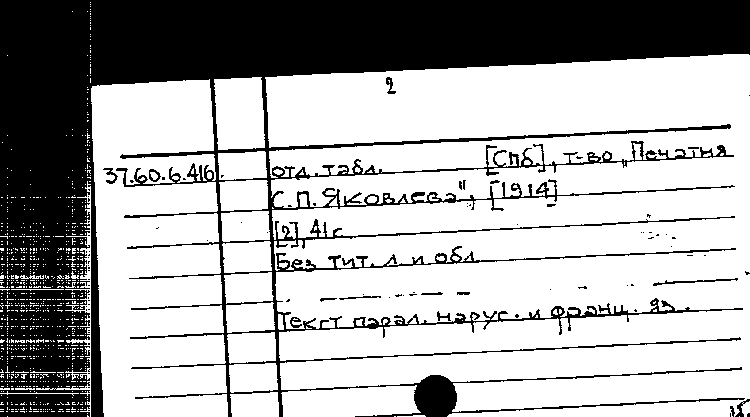 2
37.60.6.416. отд. табл. [Спб.], т-во „Печатня
С.П. Яковлева", [1914]
[2], 41 с
Без тит. л и обл
Текст парал. на рус. и франц. яз.